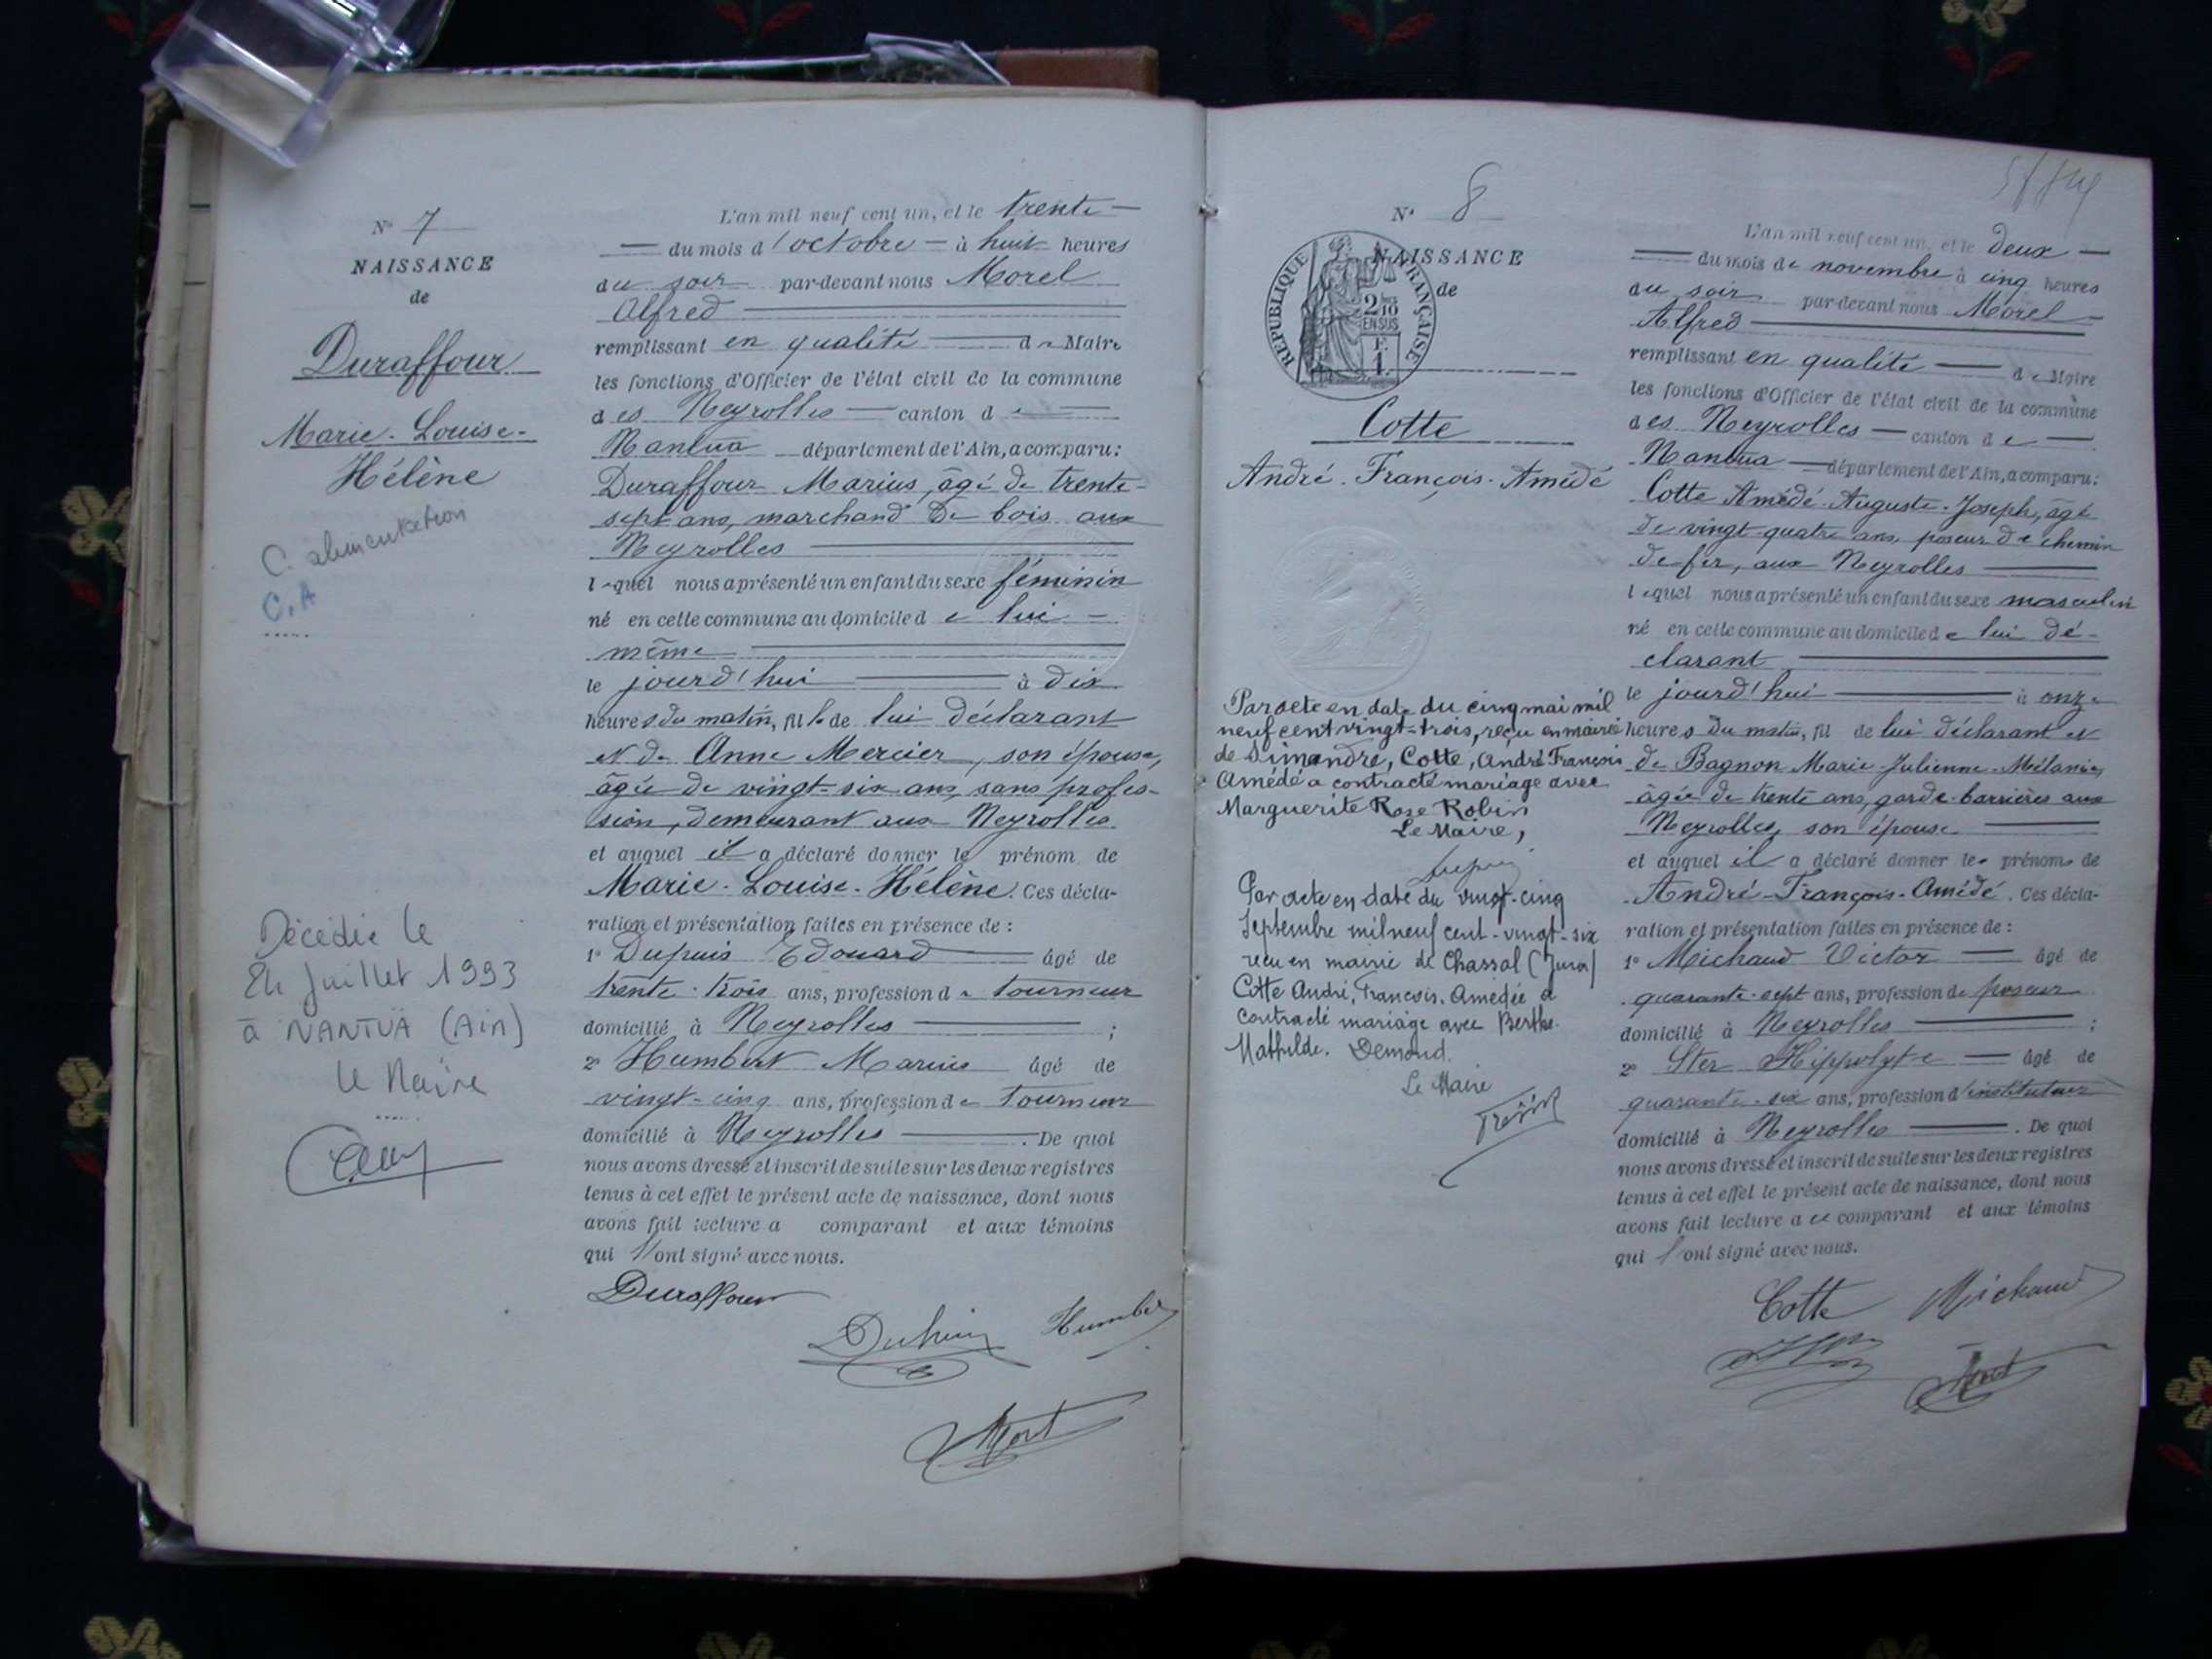 N° 7
NAISSANCE
de
Duraffour
Marie-Louise-
Hélène
C. alimentation
C.A
Décédée le
24 Juillet 1993
à NANTUA (Ain)
Le Maire
L'an mil neuf cent un, et le trente
du mois d'octobre à huit heures
du soir par-devant nous Morel
Alfred
remplissant en qualité de Maire
les fonctions d'Officier de l'état civil de la commune
des Neyrolles canton de
Nantua département de l'Ain, a comparu:
Duraffour Marius, âgé de trente-
sept ans, marchand de bois aux
Neyrolles
lequel nous a présenté un enfant du sexe féminin
né en cette commune au domicile de lui-
même
le jourd'hui à dix
heures du matin, fille de lui déclarant
et de Anne Mercier, son épouse,
âgée de vingt-six ans, sans profes-
sion, demeurant aux Neyrolles
et auquel il a déclaré donner le prénom de
Marie-Louise-Hélène. Ces décla-
ration et présentation faites en présence de :
1° Dupuis Edouard âgé de
trente-trois ans, profession de tourneur
domicilié à Neyrolles ;
2° Humbert Marius âgé de
vingt-cinq ans, profession de tourneur
domicilié à Neyrolles . De quoi
nous avons dressé et inscrit de suite sur les deux registres
tenus à cet effet le présent acte de naissance, dont nous
avons fait lecture a comparant et aux témoins
qui l'ont signé avec nous.
Duraffour
Dupuis Humbert
Morel
N° 8
NAISSANCE
de
RÉPUBLIQUE FRANÇAISE
2/10
EN SUS
F.
1.
Cotte
André-François-Amédé
Par acte en date du cinq mai mil
neuf cent vingt-trois, reçu en mairie
de Simandre, Cotte, André François
Amédé a contracté mariage avec
Marguerite Rose Robin
Le Maire,
Par acte en date du vingt-cinq
Septembre mil neuf cent-vingt-six
reçu en mairie de Chassal (Jura)
Cotte André, François, Amédée a
contracté mariage avec Berthe
Mathilde. Demond.
Le Maire
L'an mil neuf cent un, et le deux
du mois de novembre à cinq heures
du soir par-devant nous Morel
Alfred
remplissant en qualité de Maire
les fonctions d'Officier de l'état civil de la commune
des Neyrolles canton de
Nantua département de l'Ain, a comparu:
Cotte Amédé-Auguste-Joseph, âgé
de vingt-quatre ans, poseur de chemin
de fer, aux Neyrolles
lequel nous a présenté un enfant du sexe masculin
né en cette commune au domicile de lui dé-
clarant
le jourd'hui à onze
heures du matin, fil de lui déclarant et
de Bagnon Marie-Julienne-Mélanie,
âgée de trente ans, garde-barrières aux
Neyrolles, son épouse
et auquel il a déclaré donner les prénoms de
André-François-Amédé. Ces décla-
ration et présentation faites en présence de :
1° Michaud Victor âgé de
quarante-sept ans, profession de poseur
domicilié à Neyrolles ;
2° Ster Hippolyte âgé de
quarante-six ans, profession d'instituteur
domicilié à Neyrolles . De quoi
nous avons dressé et inscrit de suite sur les deux registres
tenus à cet effet le présent acte de naissance, dont nous
avons fait lecture a ce comparant et aux témoins
qui l'ont signé avec nous.
Cotte Michaud
Morel